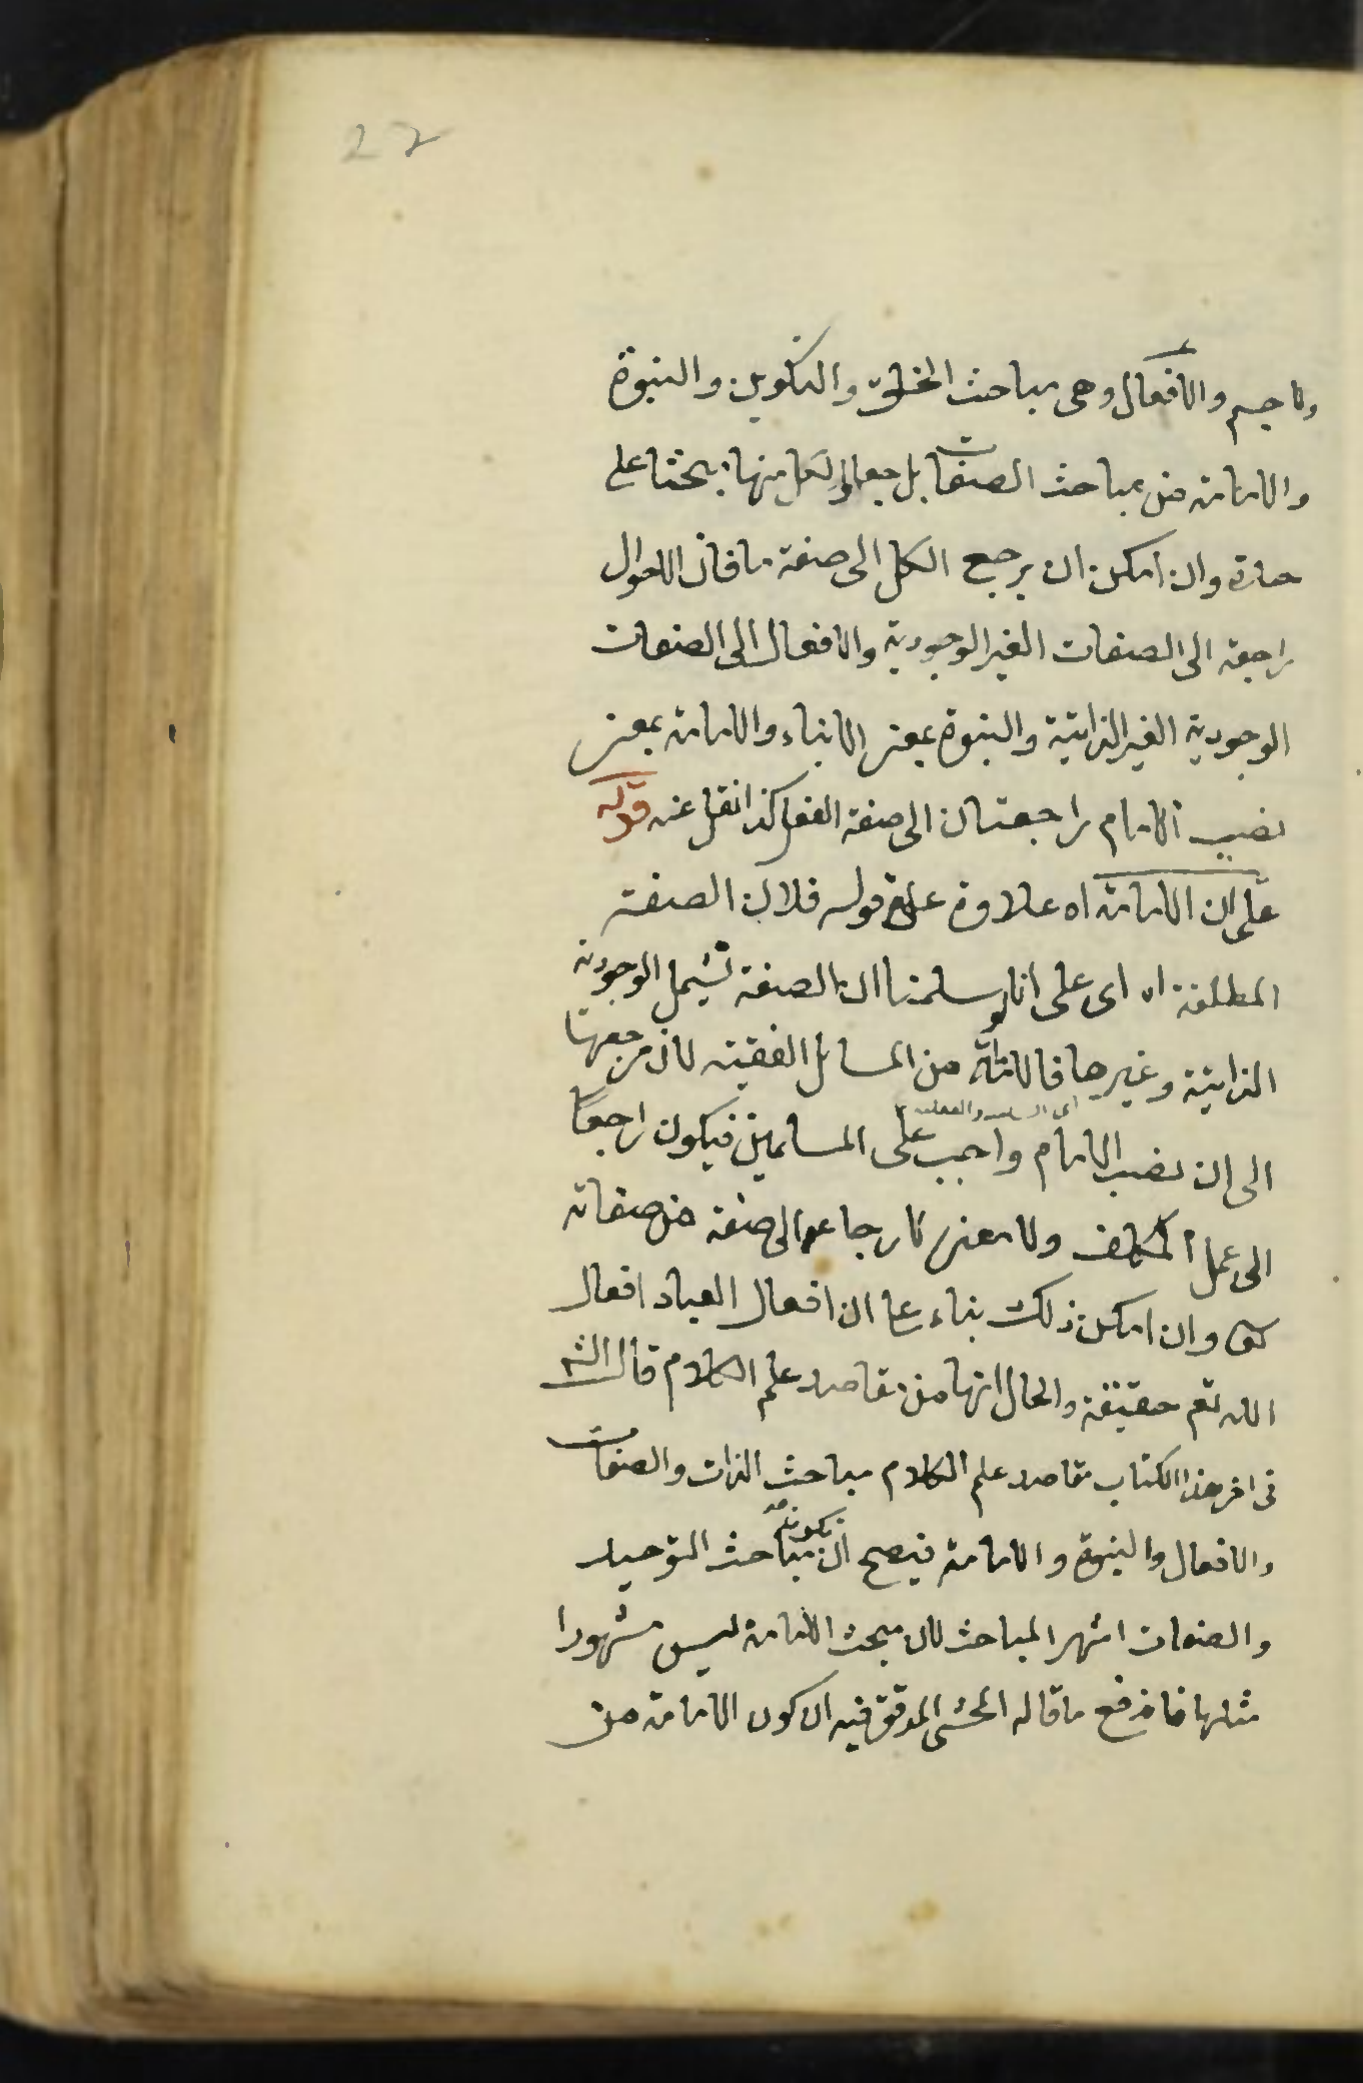 22
ولا جسم والافعال وهى مباحث الخلق والتكوين والنبوة
والامامة من مباحث الصفات بل جعلوا لكل منها بحثا على
حدة وان امكن ان يرجع الكل الى صفة ما فان الاحوال
راجعة الى الصفات الغير الوجودية والافعال الى الصفات
الوجودية الغير الذاتية والنبوة بمعنى الانباء والامامة بمعنى
نصب الامام راجعتان الى صفة الفعل كذا نقل عنه قوله
على ان الامامة اه علاوة على قوله فلان الصفة
المطلقة اه اى على انا لو سلمنا ان الصفة تشمل الوجودية
الذاتية وغيرها فالامامة من المسائل الفقهية لان مرجعها
الى ان نصب الامام واجب على المسلمين فيكون راجعا
الى عمل المكلف ولا معنى لارجاعه الى صفة من صفاته
تعالى وان امكن ذلك بناء على ان افعال العباد افعال
الله تعم حقيقة والحال انها من مقاصد علم الكلام قال الش
فى اخر هذا الكتاب مقاصد علم الكلام مباحث الذات والصفات
والافعال والنبوة والامامة فيصح ان يكون مباحث التوحيد
والصفات اشهر المباحث لان مبحث الامامة ليس مشهورا
مثلها فاندفع ما قاله المحشى المدقق فيه ان كون الامامة من